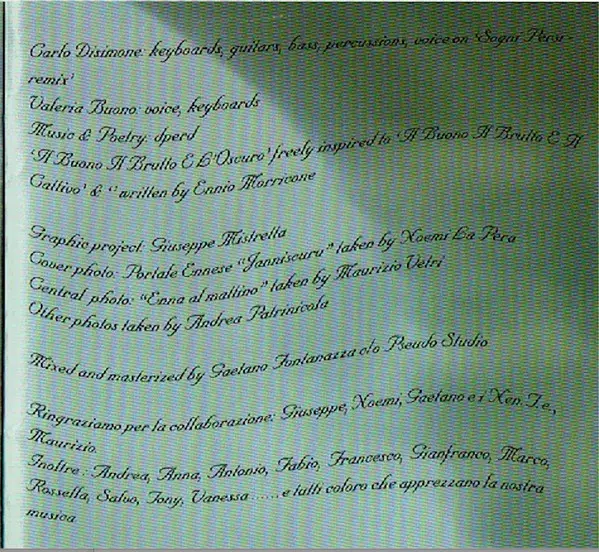 Carlo Disimone: keyboards, guitars, bass, percussions, voice on 'Sogni Persi -
remix'
Valeria Buono: voice, keyboards
Music & Poetry: dperd
'Il Buono Il Brutto E L'Oscuro' freely inspired to 'Il Buono Il Brutto E Il
Cattivo' & '' written by Ennio Morricone
Graphic project: Giuseppe Mistretta
Cover photo: Portale Ennese "Janniscuru" taken by Noemi La Pera
Central photo: "Enna al mattino" taken by Maurizio Vetri
Other photos taken by Andrea Patrinicola
Mixed and masterized by Gaetano Fontanazza c/o Pseudo Studio
Ringraziamo per la collaborazione: Giuseppe, Noemi, Gaetano e i Xen.T.e.,
Maurizio.
Inoltre : Andrea, Anna, Antonio, Fabio, Francesco, Gianfranco, Marco,
Rossella, Salvo, Tony, Vanessa ...... e tutti coloro che apprezzano la nostra
musica